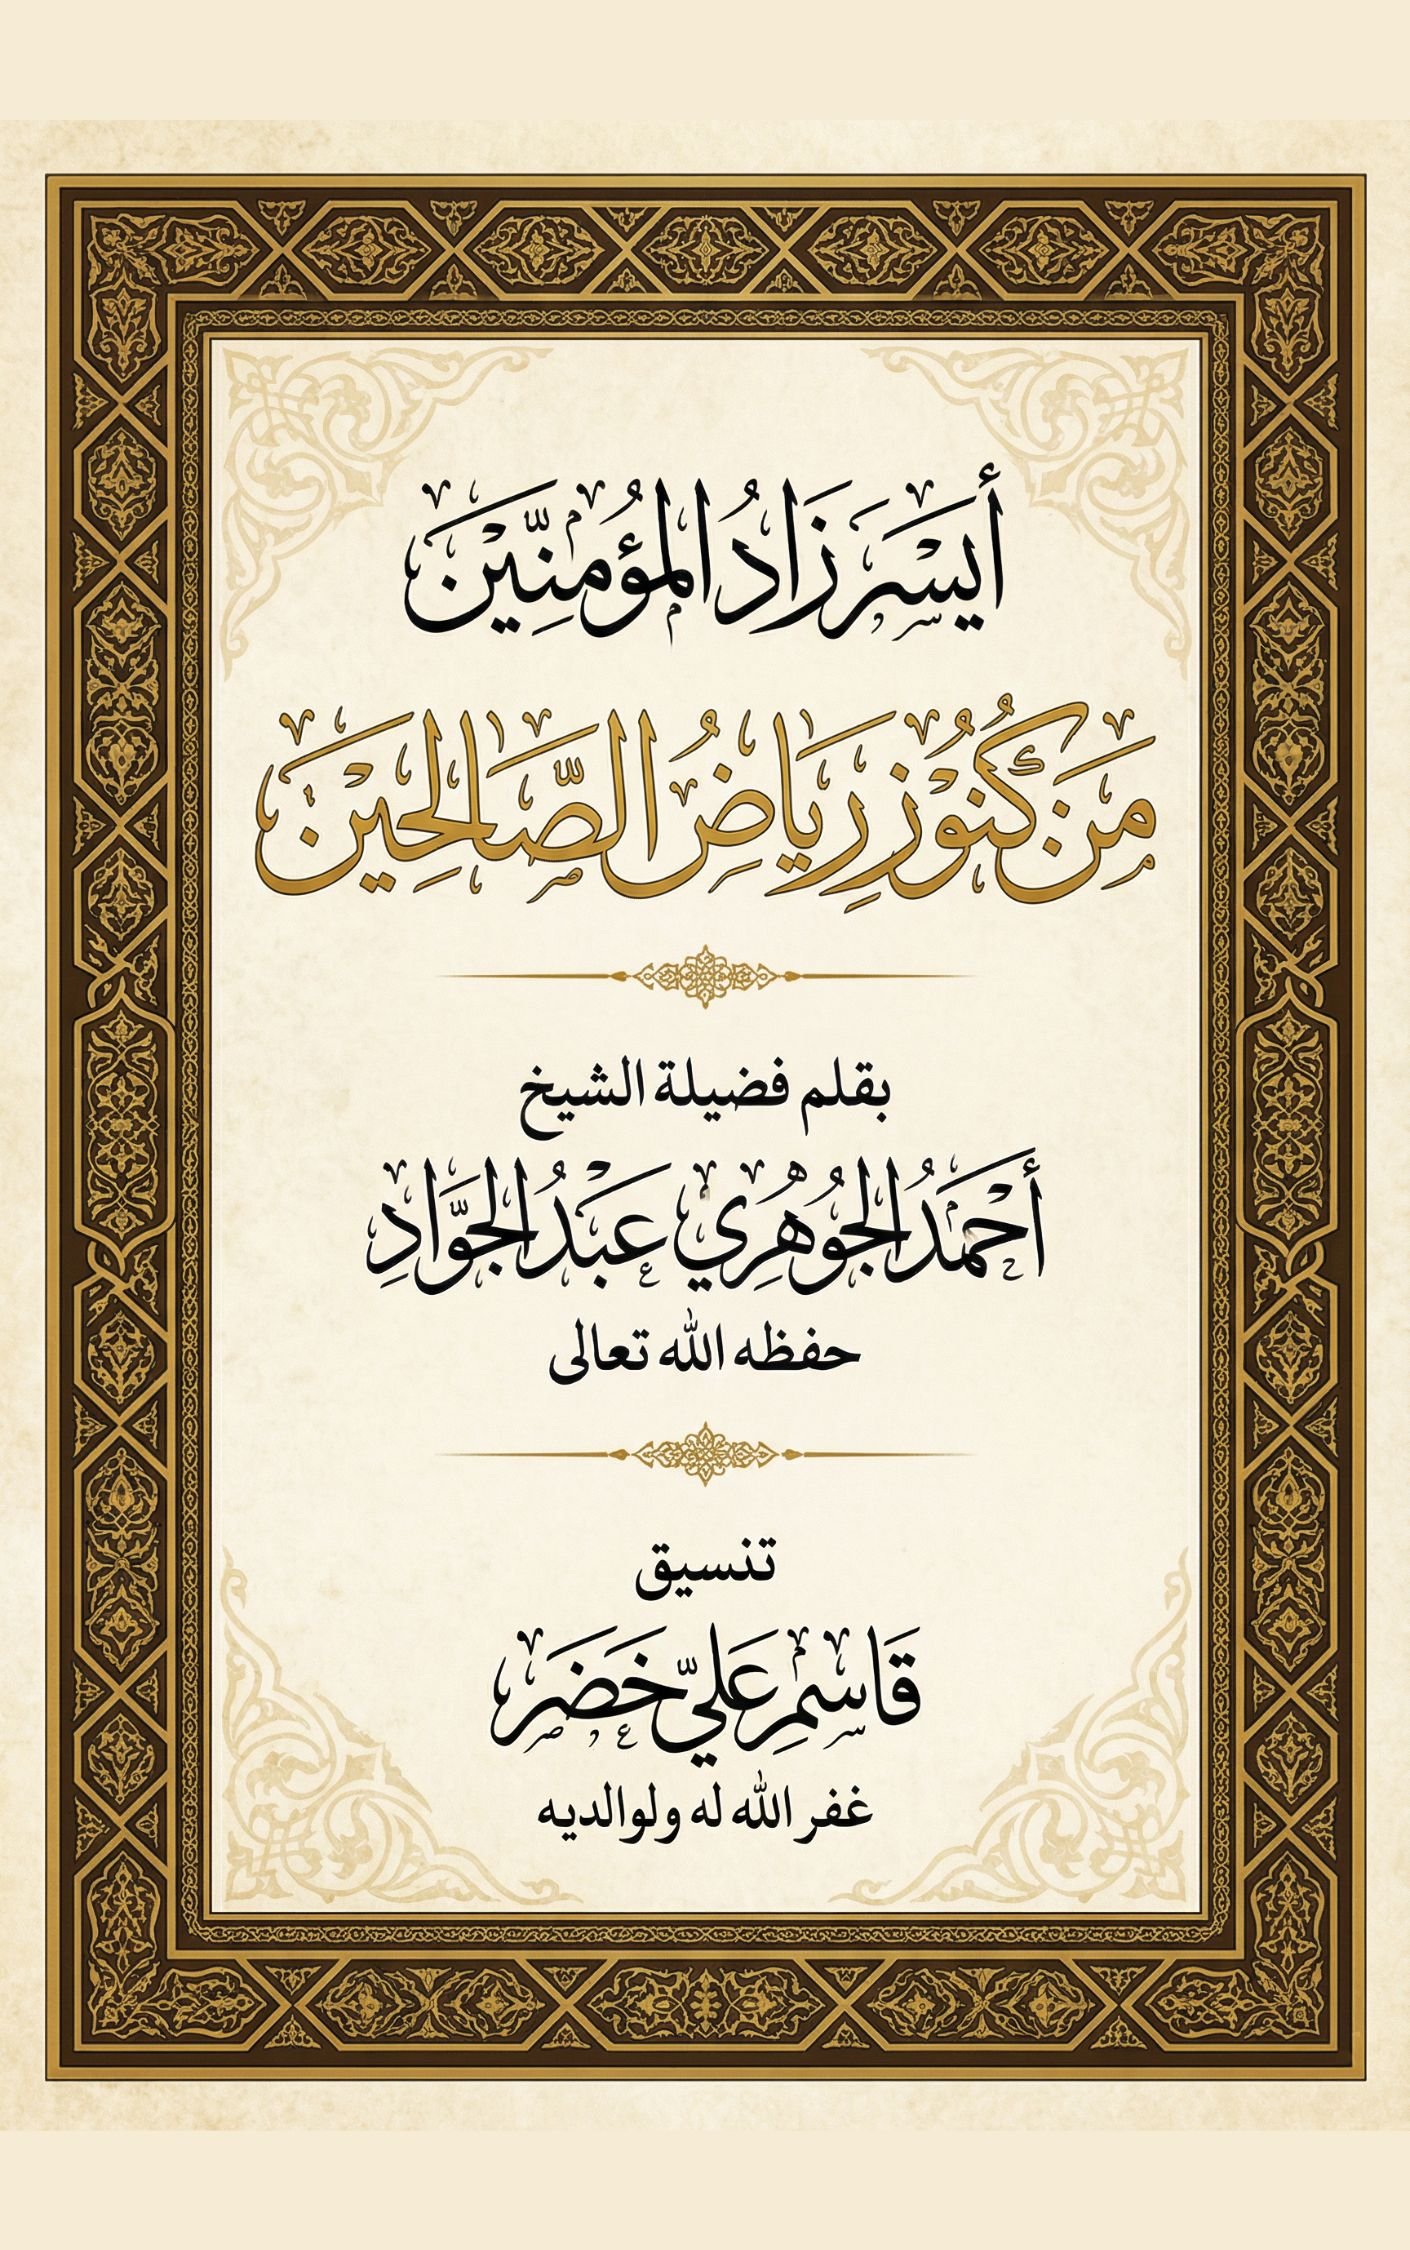 أيسر زاد المؤمنين
من كنوز رياض الصالحين
بقلم فضيلة الشيخ
أحمد الجوهري عبد الجواد
حفظه الله تعالى
تنسيق
قاسم علي خضر
غفر الله له ولوالديه